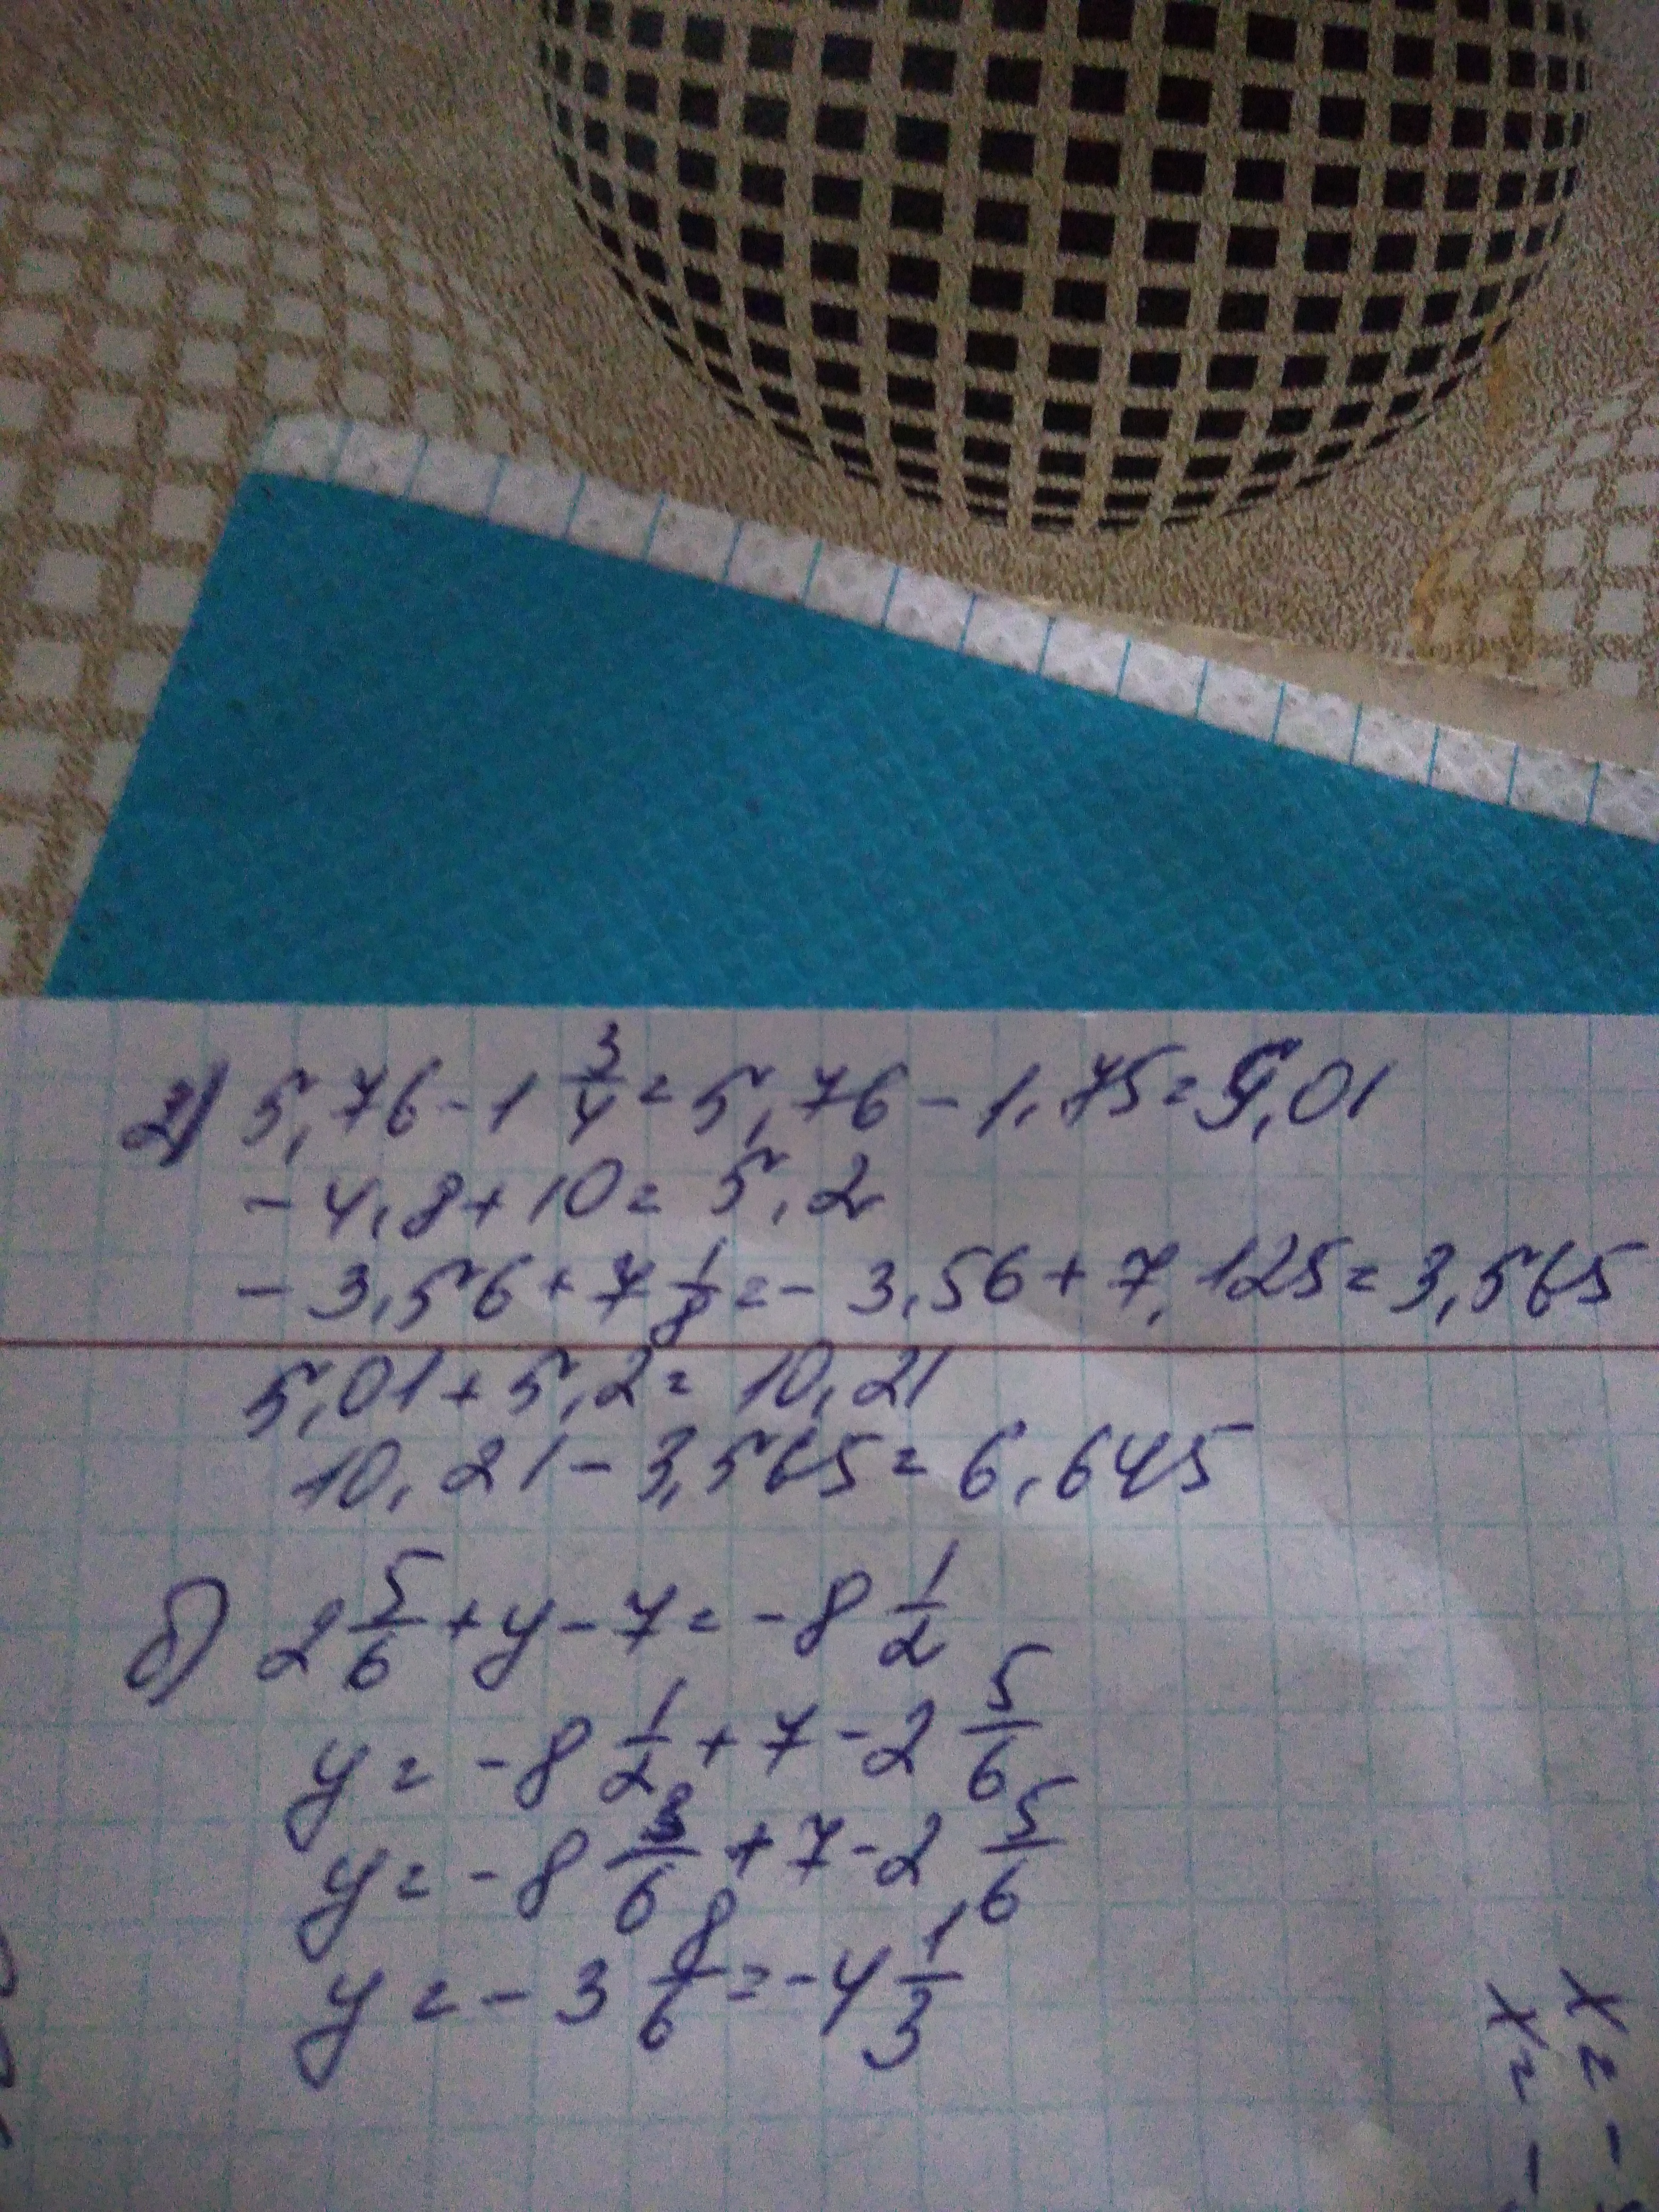 2) 5,76 - 1 3/4 = 5,76 - 1,75 = 5,01
- 4,8 + 10 = 5,2
- 3,56 + 7 1/8 = - 3,56 + 7,125 = 3,565
5,01 + 5,2 = 10,21
10,21 - 3,565 = 6,645
б) 2 5/6 + y - 7 = - 8 1/2
y = - 8 1/2 + 7 - 2 5/6
y = - 8 3/6 + 7 - 2 5/6
y = - 3 8/6 = - 4 1/3
x = -
x = -